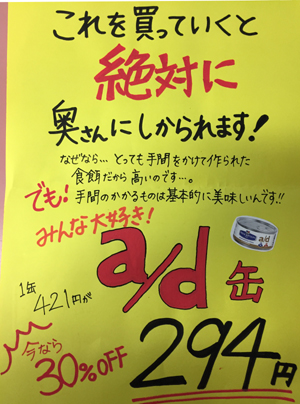 これを買っていくと
絶対に
奥さんにしかられます!
なぜなら…とっても手間をかけて作られた
食餌だから高いのです…。
でも!手間のかかるものは基本的に美味しいんです!!
みんな大好き!
a/d缶
a/d
1缶
421円が
今なら
30%OFF
294円